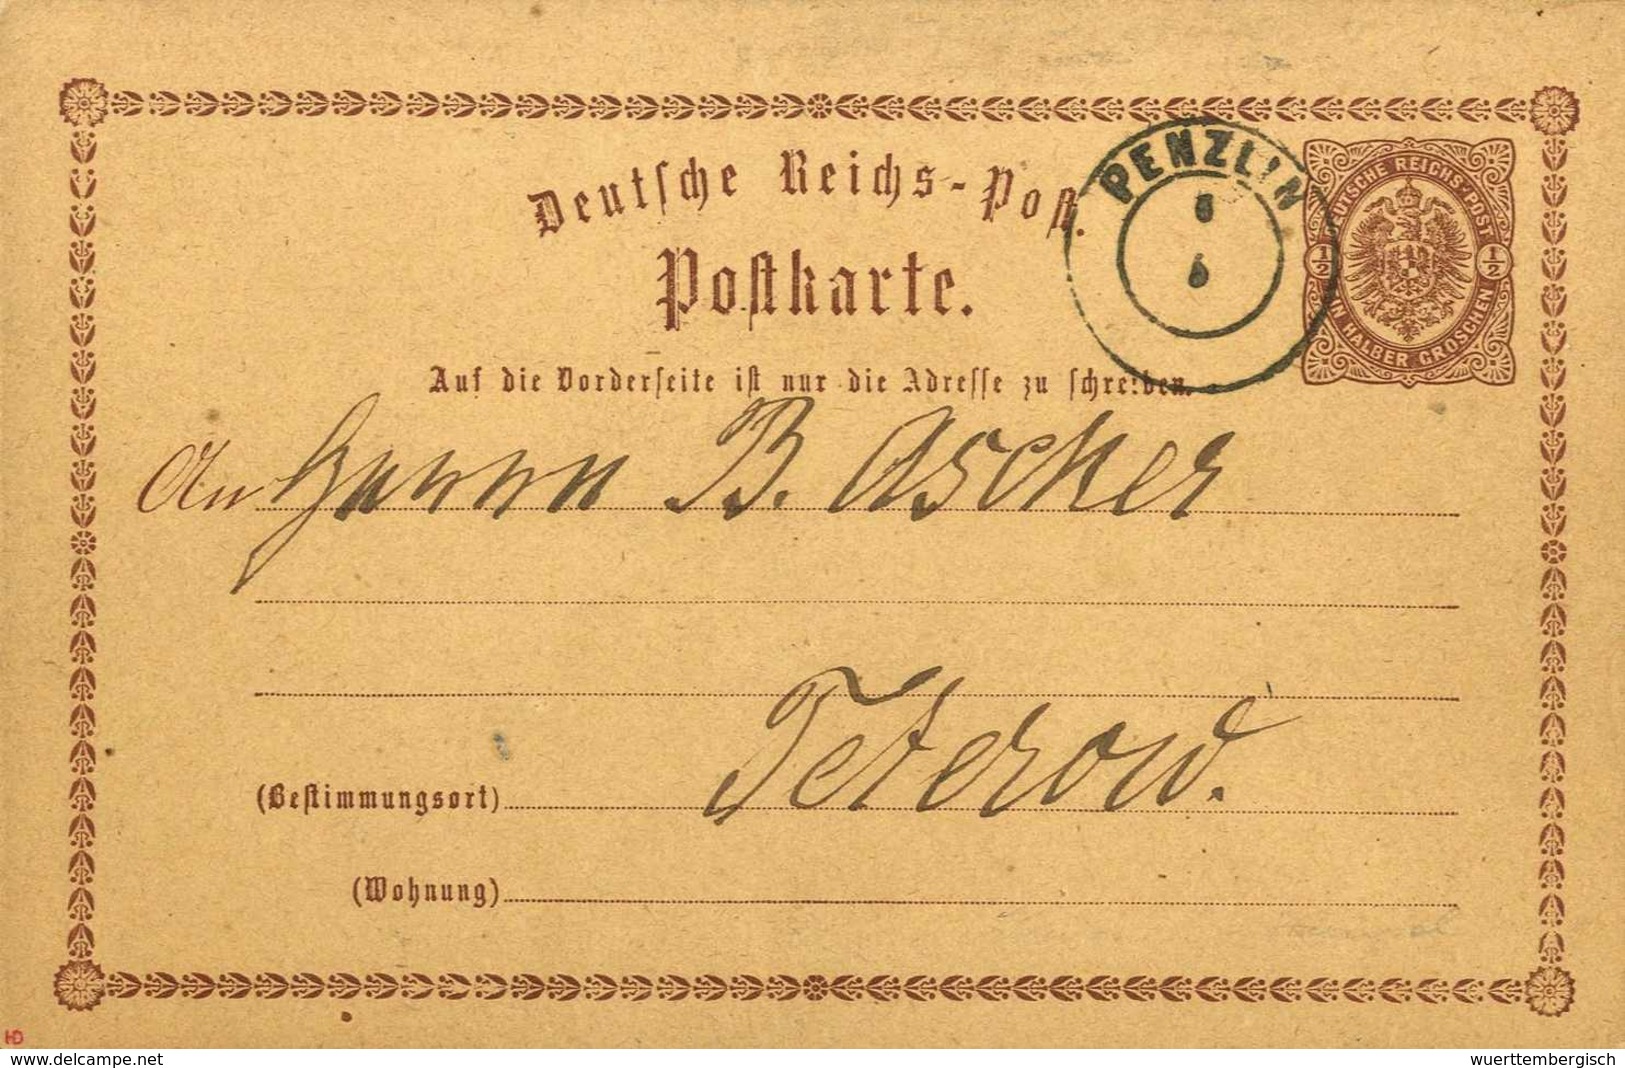 Deutsche Reichs-Post.
Postkarte.
PENZLIN
6
DEUTSCHE REICHS-POST
1/2 1/2
EIN HALBER GROSCHEN
Auf die Vorderseite ist nur die Adresse zu schreiben.
An Herrn B. Ascher
Teterow.
(Bestimmungsort)
(Wohnung)
HD
www.delcampe.net
wuerttembergisch